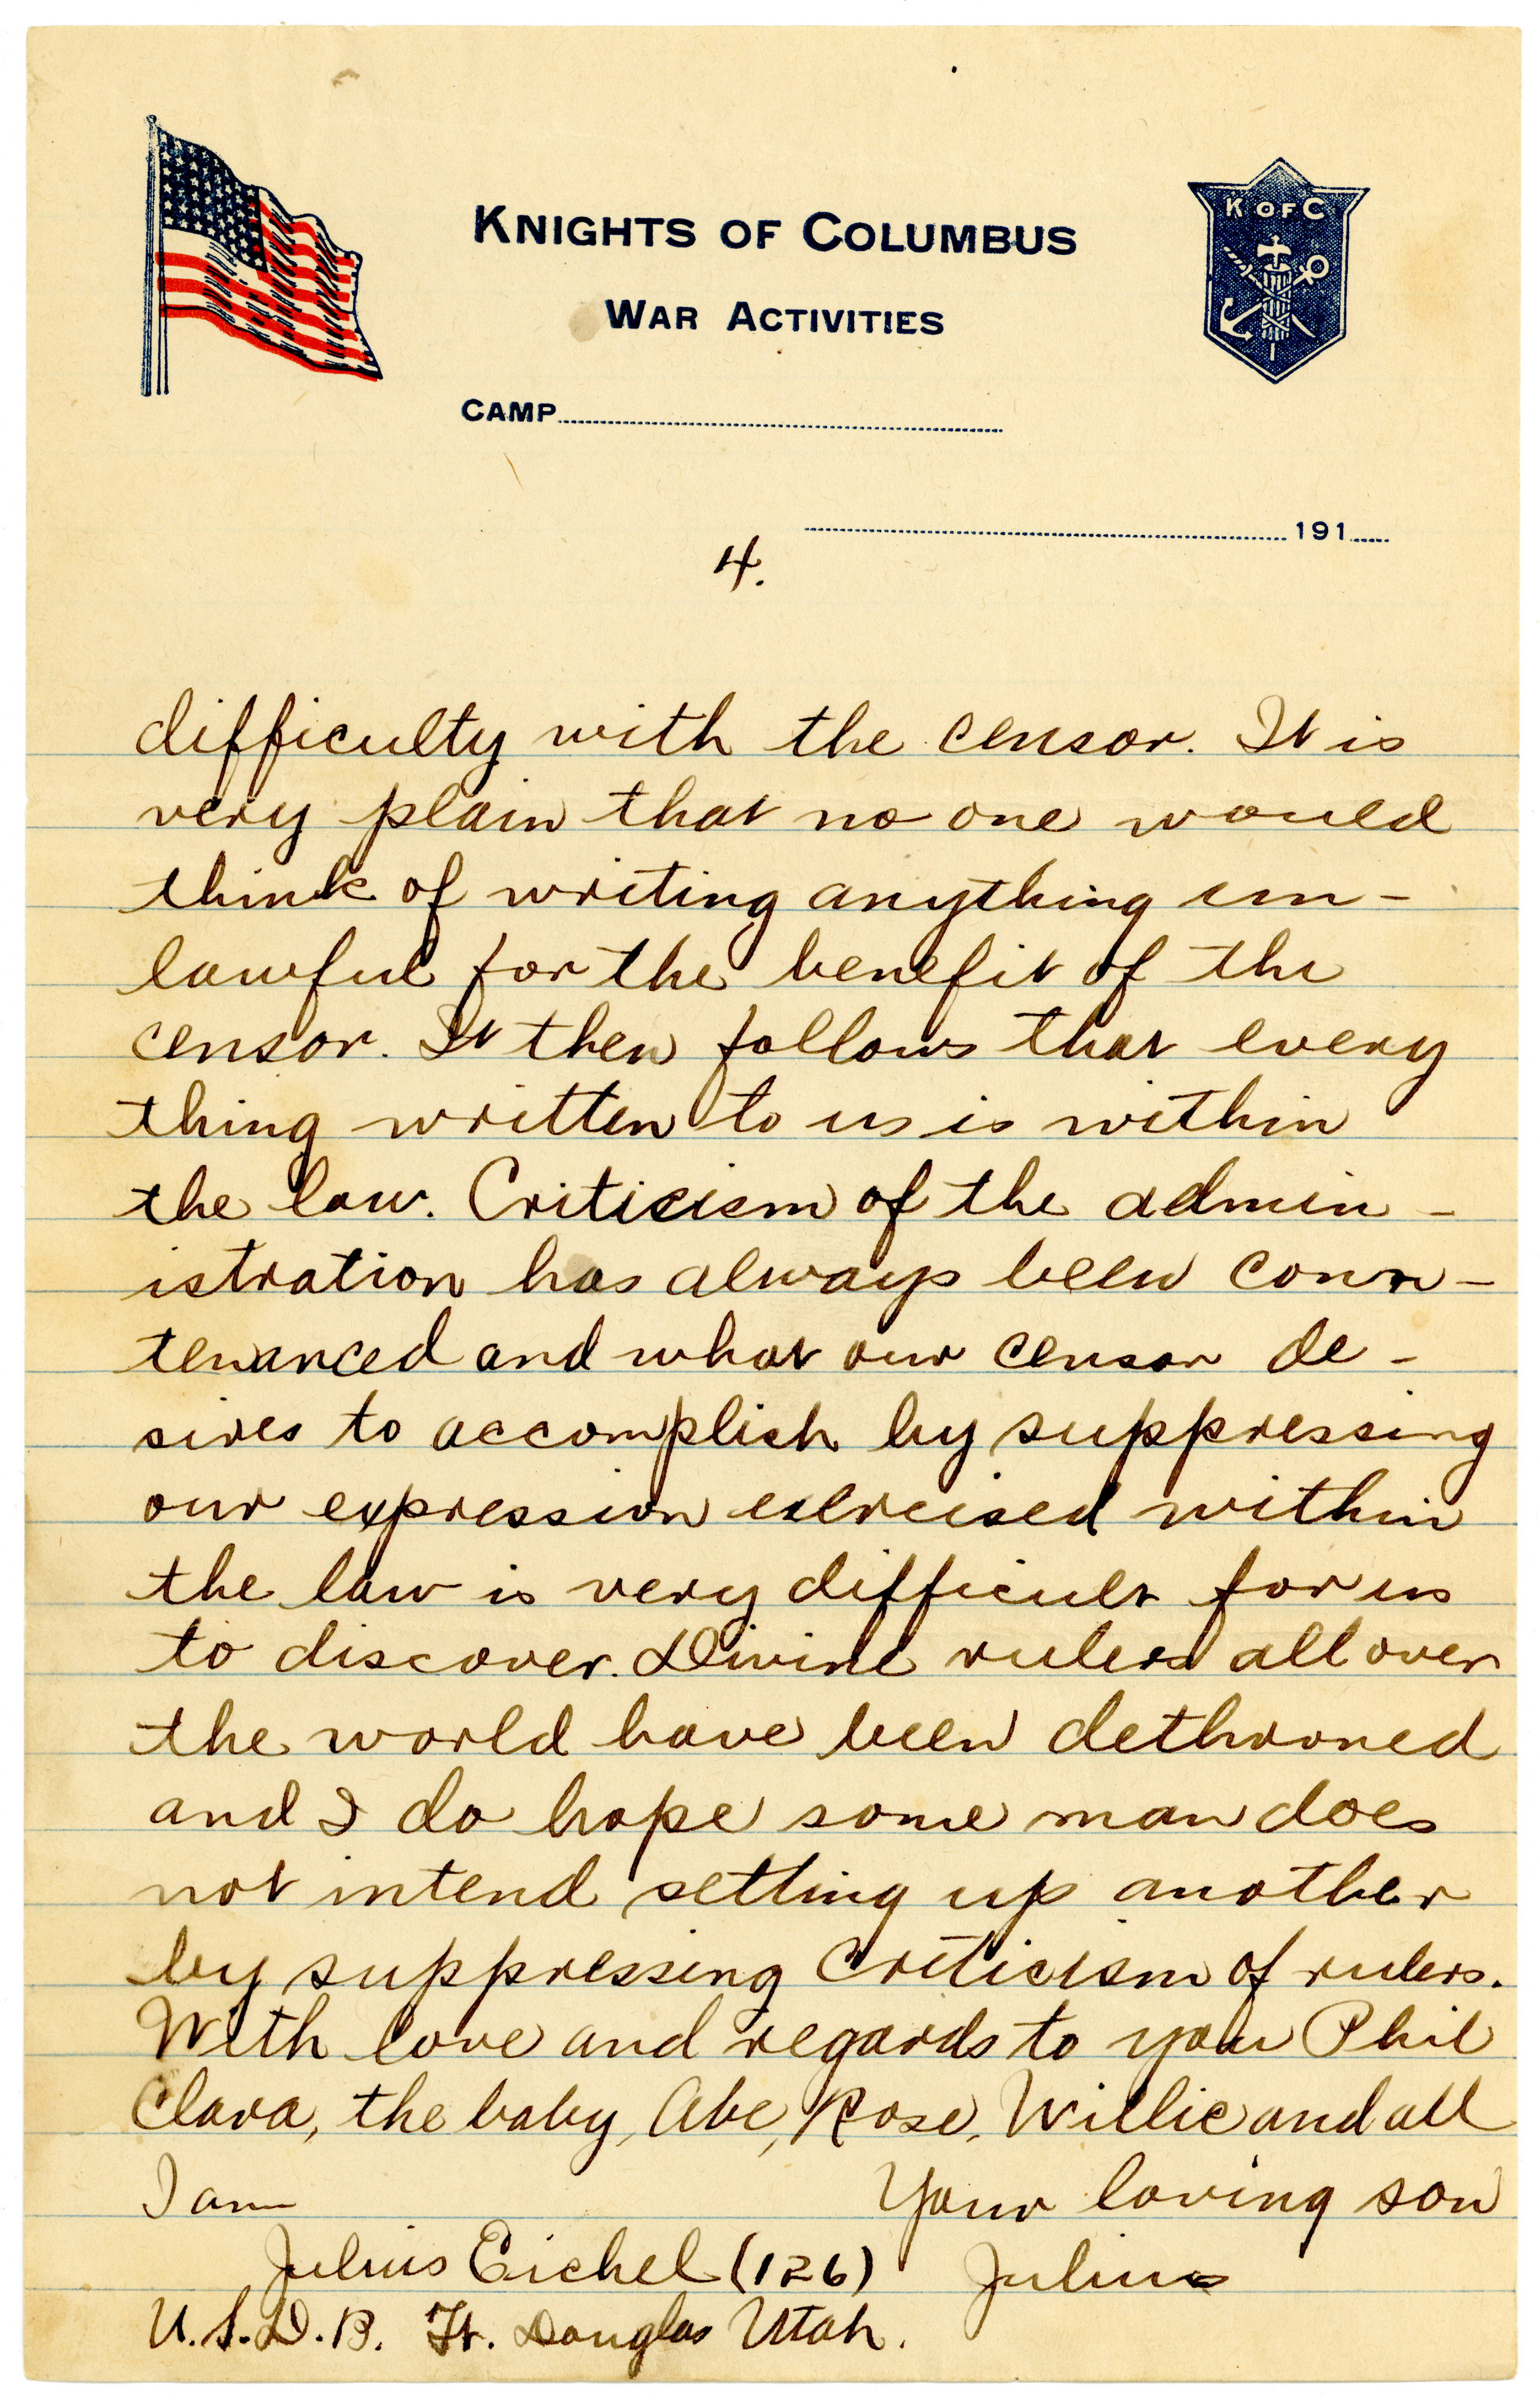 KNIGHTS OF COLUMBUS
K OF C
WAR ACTIVITIES
CAMP
191
4.
difficulty with the censor. It is
very plain that no one would
think of writing anything un-
lawful for the benefit of the
censor. It then follows that every
thing written to us is within
the law. Criticism of the admin-
istration has always been coun-
tenanced and what our censor de-
sires to accomplish by suppressing
our expression exercised within
the law is very difficult for us
to discover. Divine rulers all over
the world have been dethroned
and I do hope some man does
not intend setting up another
by suppressing criticism of rulers.
With love and regards to you Phil
Clara, the baby, Abe, Rose, Willie and all
I am Your loving son
Julius Eichel (126) Julius
U.S.D.B. Ft. Douglas Utah.